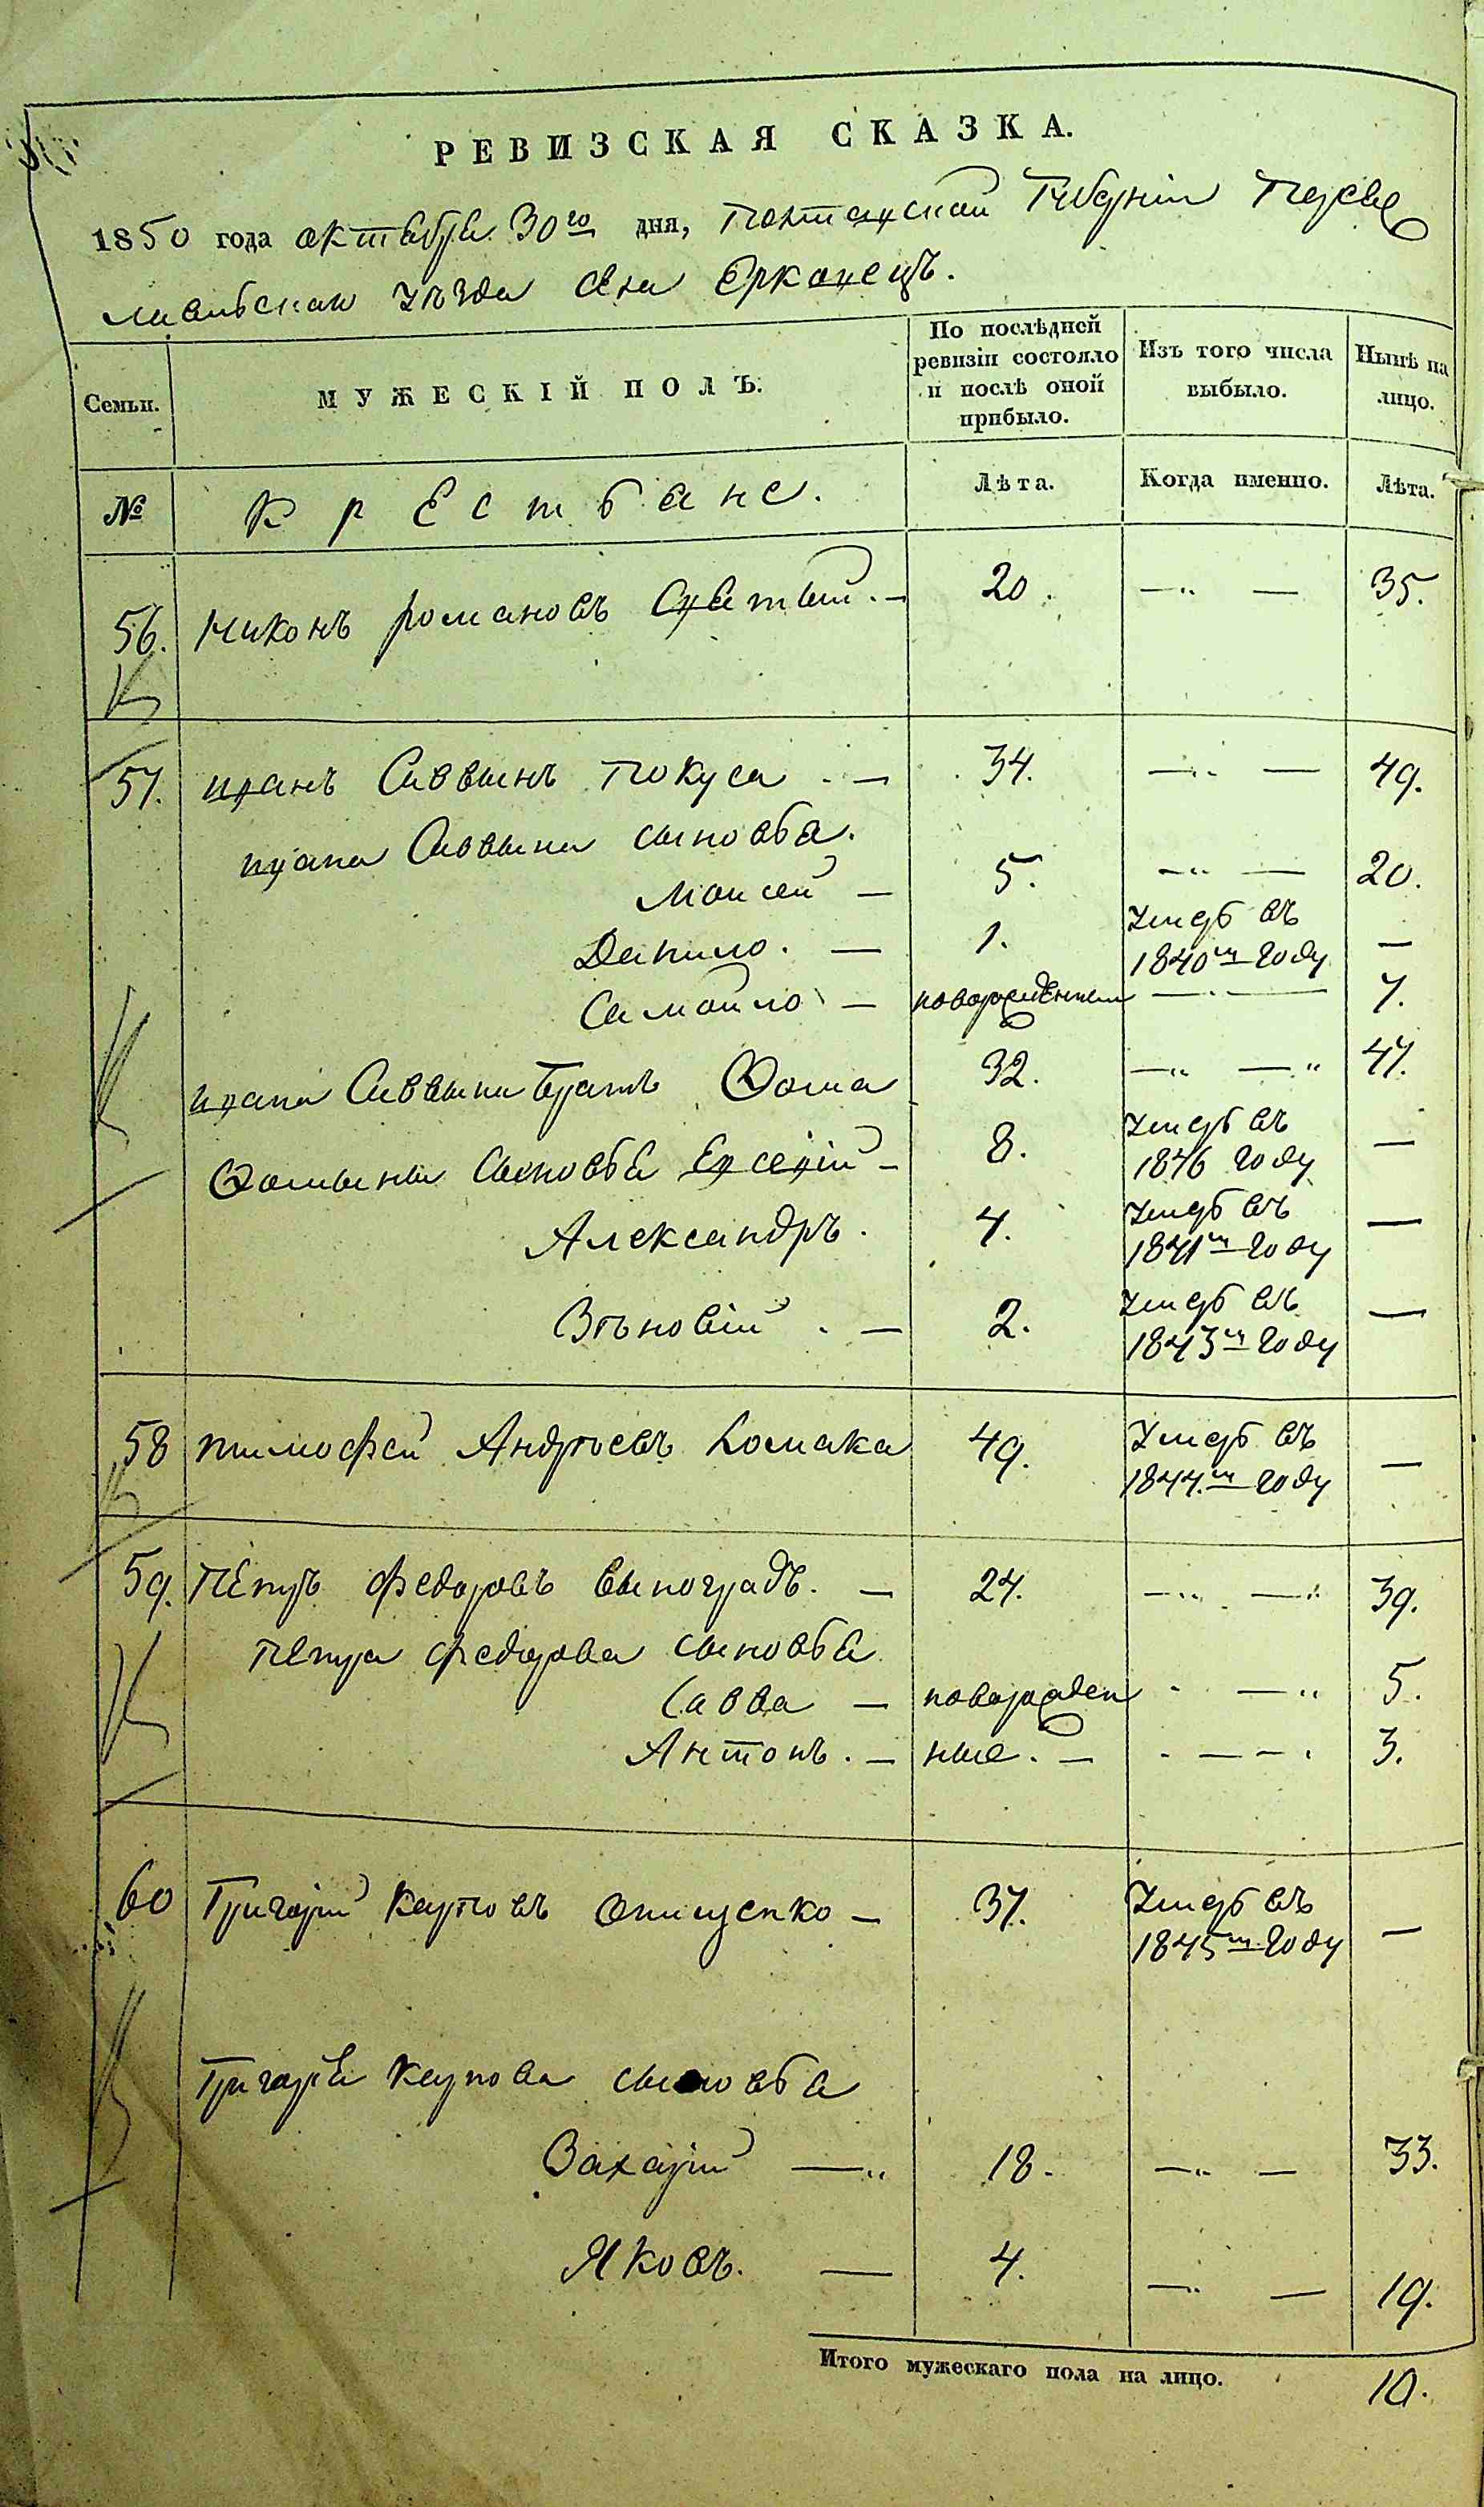 РЕВИЗСКАЯ СКАЗКА.
1850 года октября 30го дня, Полтавской Губернии Перея
славьской уѣзда Села Ерковецъ.
Семьи.
МУЖЕСКІЙ ПОЛЪ.
По послѣдней ревизіи состояло и послѣ оной прибыло.
Изъ того числа выбыло.
Нынѣ на лицо.
№ Крестьяне. Лѣта. Когда именно. Лѣта.
56. Никонъ Романовъ — 20. — — 35.
57. Иванъ Саввынъ Покуса — 34. — — 49.
Ивана Саввына сыновья.
Моисей — 5. — — 20.
Данило. — 1. Умеръ въ 1840м году —
Самойло — новорожденный — 7.
Ивана Саввына братъ Фома 32. — — 47.
Фомыны сыновья Евсевій — 8. Умеръ въ 1846 году —
Александръ. 4. Умеръ въ 1841м году —
Зѣновій. — 2. Умеръ въ 1843м году —
58 Тимофей Андреевъ Ломака 49. Умеръ въ 1844м году —
59. Петръ Федоровъ Выноградъ. — 24. — — 39.
Петра Федорова сыновья
Савва — новорожден — 5.
Антонъ. — ные. — — — 3.
60 Григорій Карповъ Онищенко — 37. Умеръ въ 1845м году —
Григорія Карпова сыновья
Захарій — 18. — — 33.
Яковъ. — 4. — — 19.
Итого мужескаго пола на лицо. 10.